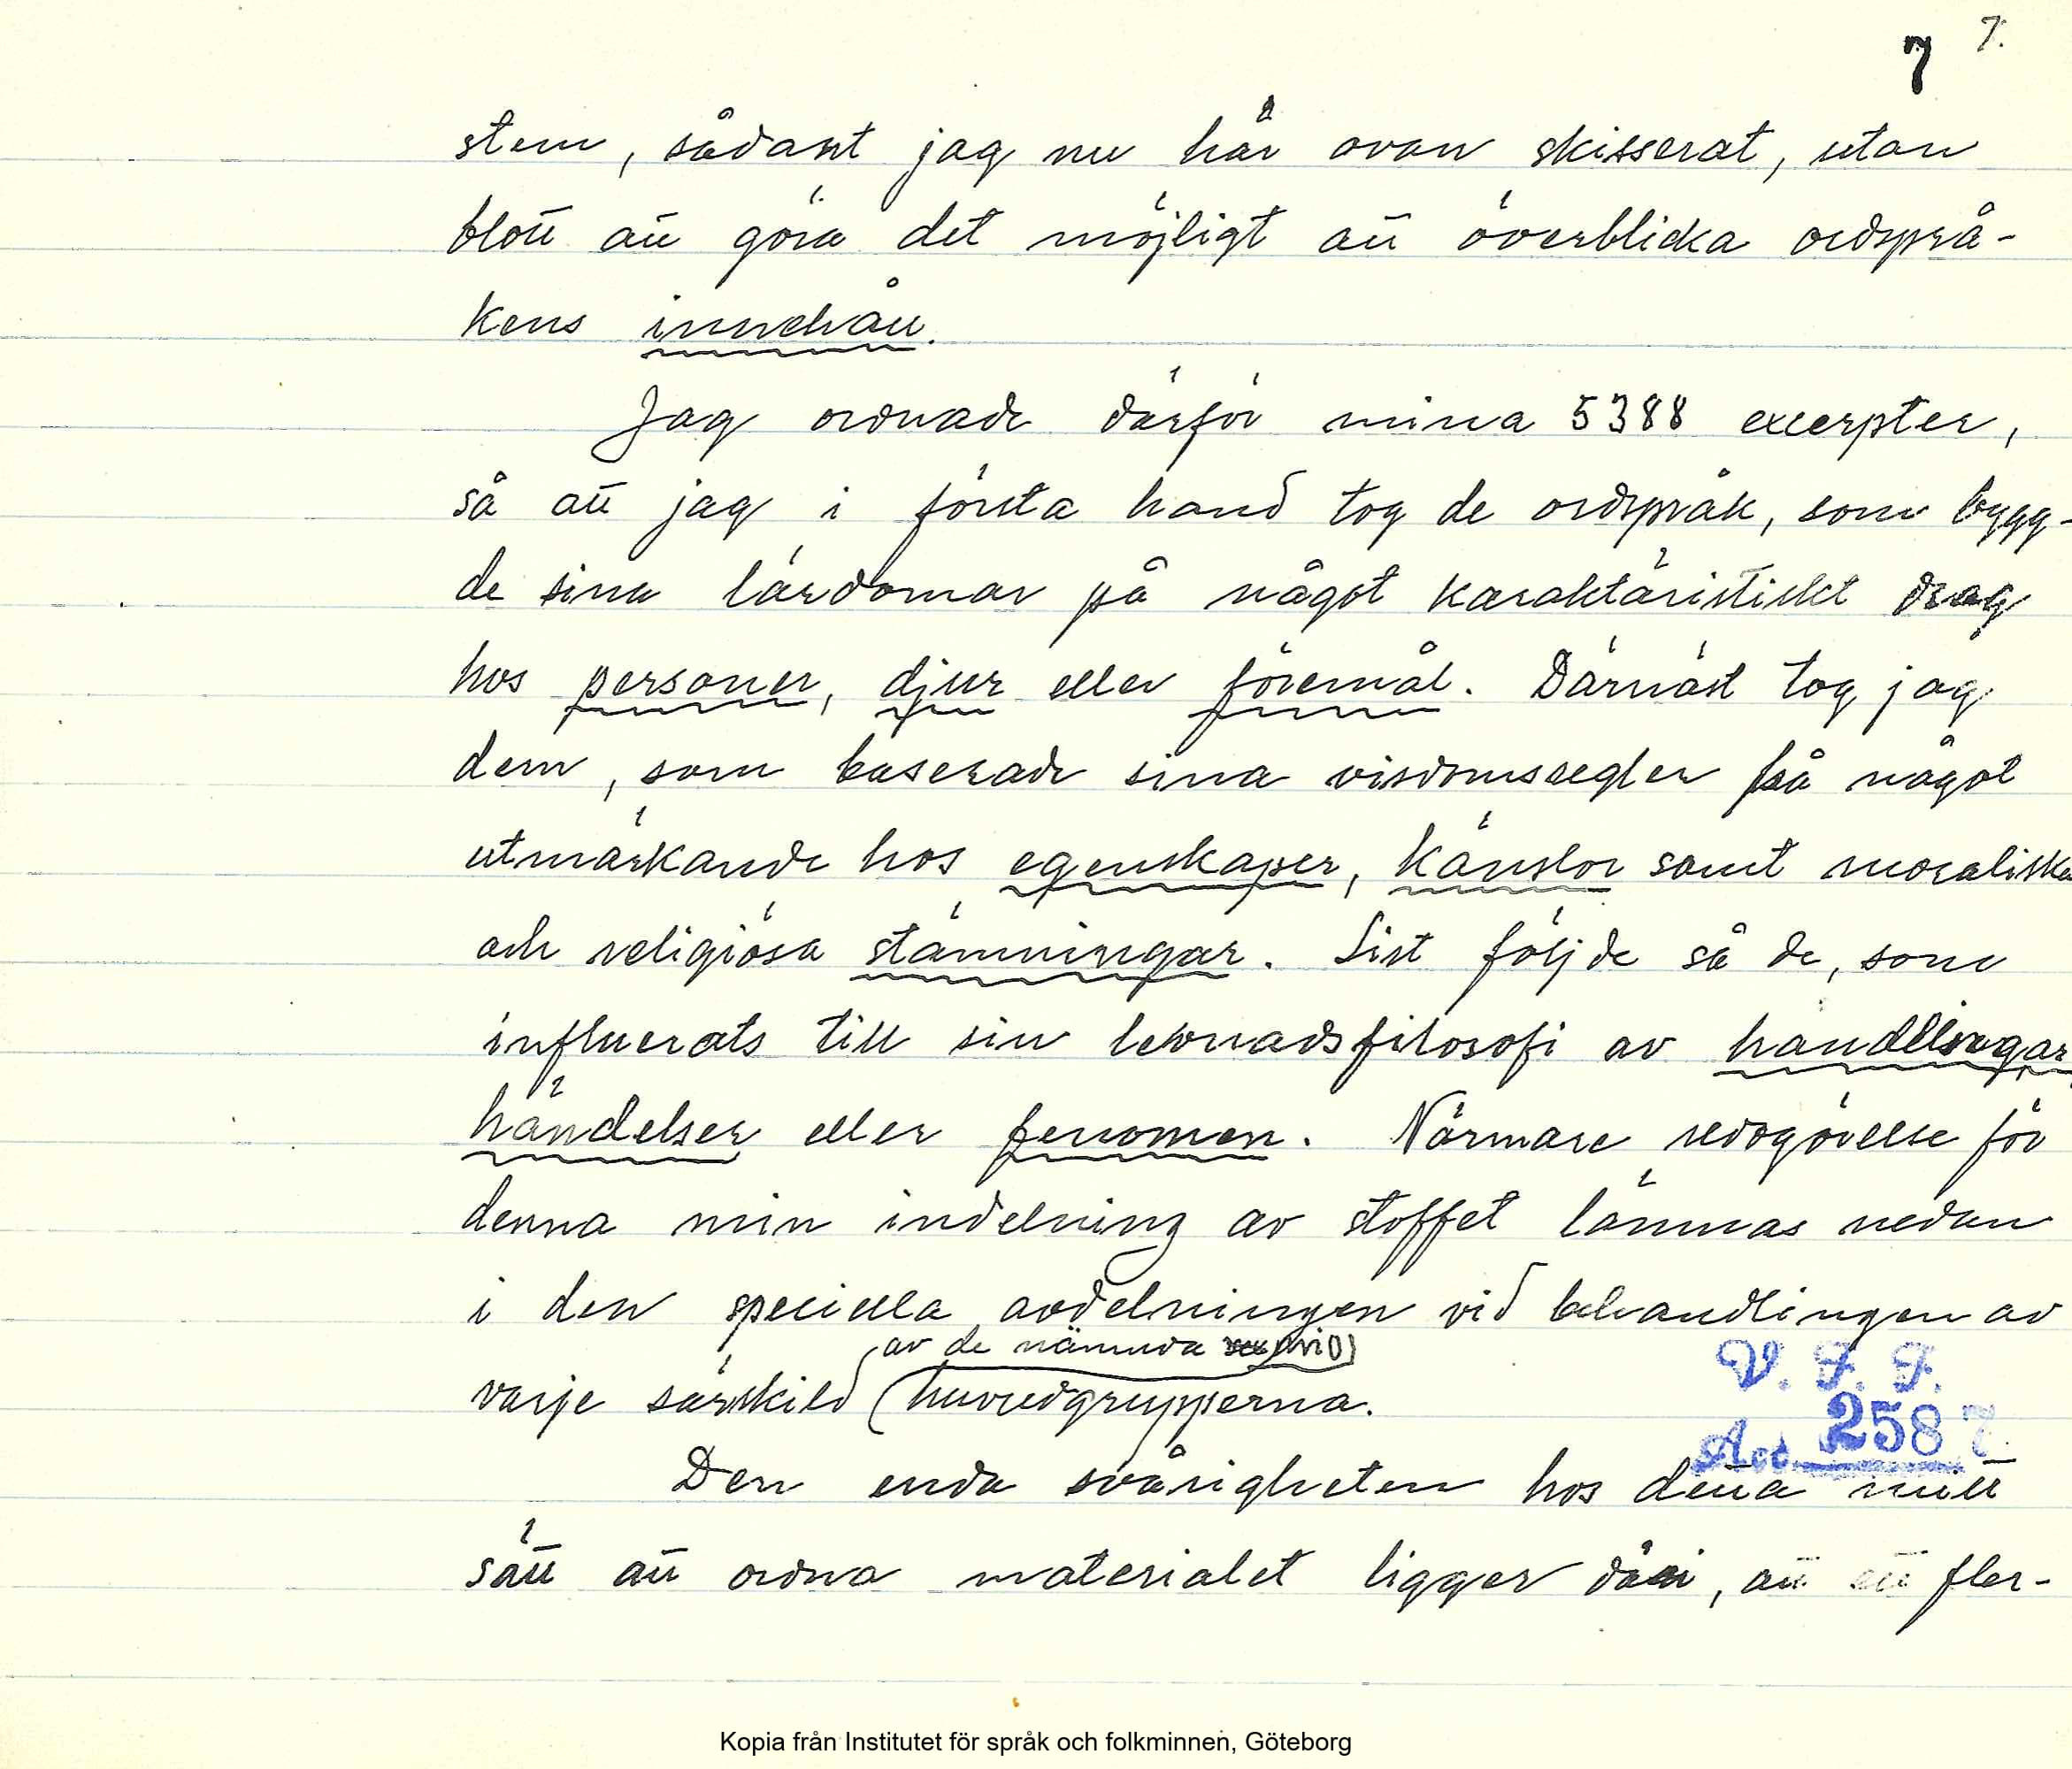 7 7.
stem, sådant jag nu här ovan skisserat, utan
blott att göra det möjligt att överblicka ordsprå-
kens innehåll.
Jag ordnade därför mina 5388 excerpter,
så att jag i första hand tog de ordspråk, som bygg-
de sina lärdomar på något karaktäristiskt drag
hos personer, djur eller föremål. Därnäst tog jag
dem, som baserade sina visdomsregler på något
utmärkande hos egenskaper, känslor samt moraliska
och religiösa stämningar. Sist följde så de, som
influerats till sin levnadsfilosofi av handlingar,
händelser eller fenomen. Närmare redogörelse för
denna min indelning av stoffet lämnas nedan
i den speciella avdelningen vid behandlingen av
av de nämnda
varje särskild (huvudgrupperna.
V. F. F.
Acc. 2587
Den enda svårigheten hos detta mitt
sätt att ordna materialet ligger däri, att ett fler-
Kopia från Institutet för språk och folkminnen, Göteborg